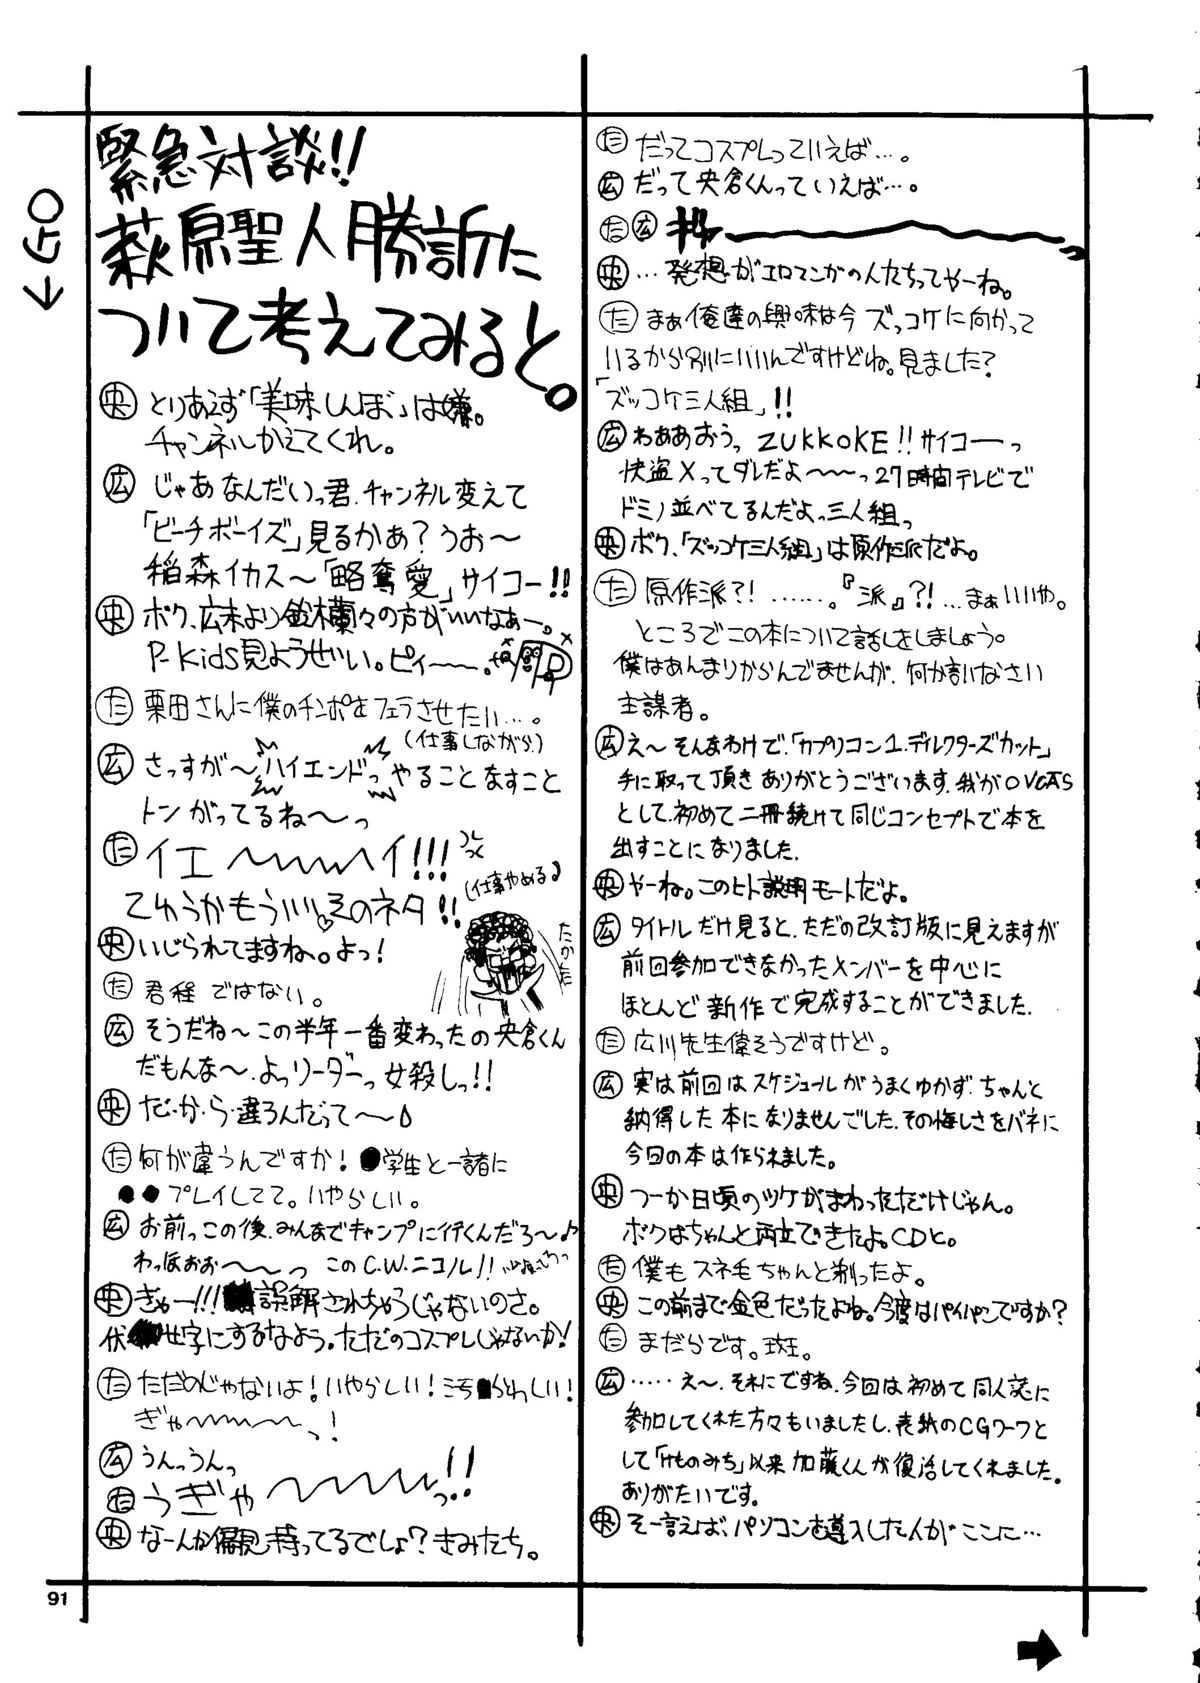 ←GO
緊急対談!!
萩原聖人勝訴に
ついて考えてみると。
央 とりあえず「美味しんぼ」は嫌。
チャンネルかえてくれ。
広 じゃあなんだいっ君、チャンネル変えて
「ビーチボーイズ」見るかぁ?うお〜
稲森イカス〜「略奪愛」サイコー!!
央 ボク、広末より鈴木蘭々の方がいいなぁー。
P-Kids見ようぜい。ピィ〜〜。
た 栗田さんに僕のチンポをフェラさせたい…。
(仕事しながら)
広 さっすが〜ハイエンドっやることなすこと
トンがってるね〜っ
た イエ〜〜〜イ!!!
てゅうかもういいよそのネタ!!
(仕事やめる)
たかた
央 いじられてますね。よっ!
た 君程ではない。
広 そうだね〜この半年一番変わったの央倉くん
だもんな〜、よっリーダーっ女殺しっ!!
央 だ・か・ら・違ろんだって〜♪
た 何が違うんですか!●学生と一諸に
●●プレイしてて。いやらしい。
広 お前っこの後、みんなでキャンプに行くんだろ〜♪
わっほぉぉ〜〜っ このC.W.ニコル!!
央 ぎゃー!!!誤解されちゃうじゃないのさ。
伏せ字にするなよう。ただのコスプレじゃないか!
た ただのじゃないよ!いやらしい!こち●らわしい!
ぎゃ〜〜〜っ!
広 うんっうんっ
た うぎゃ〜〜〜っ!!
央 なーんか偏見持ってるでしょ?きみたち。
91
た だってコスプレっていえば…。
広 だって央倉くんっていえば…。
た 広 ギャ〜〜〜〜っ
央 …発想がエロマンガの人たちってやーね。
た まぁ俺達の興味は今ズッコケに向かって
いるから別にいいんですけどね。見ました?
「ズッコケ三人組」!!
広 わああおうっ ZUKKOKE!!サイコーっ
快盗Xってダレだよ〜〜っ27時間テレビで
ドミノ並べてるんだよっ三人組っ
央 ボク、「ズッコケ三人組」は原作派だよ。
た 原作派?!……。『派』?!…まぁいいや。
ところでこの本について話しをしましょう。
僕はあんまりからんでませんが、何か言いなさい
主謀者。
広 え〜そんなわけで、「カプリコン1.ディレクターズカット」
手に取って頂きありがとうございます。我がOVCASと
して、初めて二冊続けて同じコンセプトで本を
出すことになりました。
央 やーね。このヒト説明モードだよ。
広 タイトルだけ見ると、ただの改訂版に見えますが
前回参加できなかったメンバーを中心に
ほとんど新作で完成することができました。
た 広川先生偉そうですけど。
広 実は前回はスケジュールがうまくゆかず、ちゃんと
納得した本になりませんでした。その悔しさをバネに
今回の本は作られました。
央 つーか日頃のツケがまわっただけじゃん。
ボクはちゃんと両立できたよ。CDと。
た 僕もスネ毛ちゃんと剃ったよ。
央 この前まで金色だったよね。今度はパイパンですか?
た まだらです。斑。
広 ……え〜、それにですね、今回は初めて同人誌に
参加してくれた方々もいましたし、表紙のCGワークと
して「けものみち」以来加藤くんが復活してくれました。
ありがたいです。
央 そー言えば、パソコンを導入した人がここに…